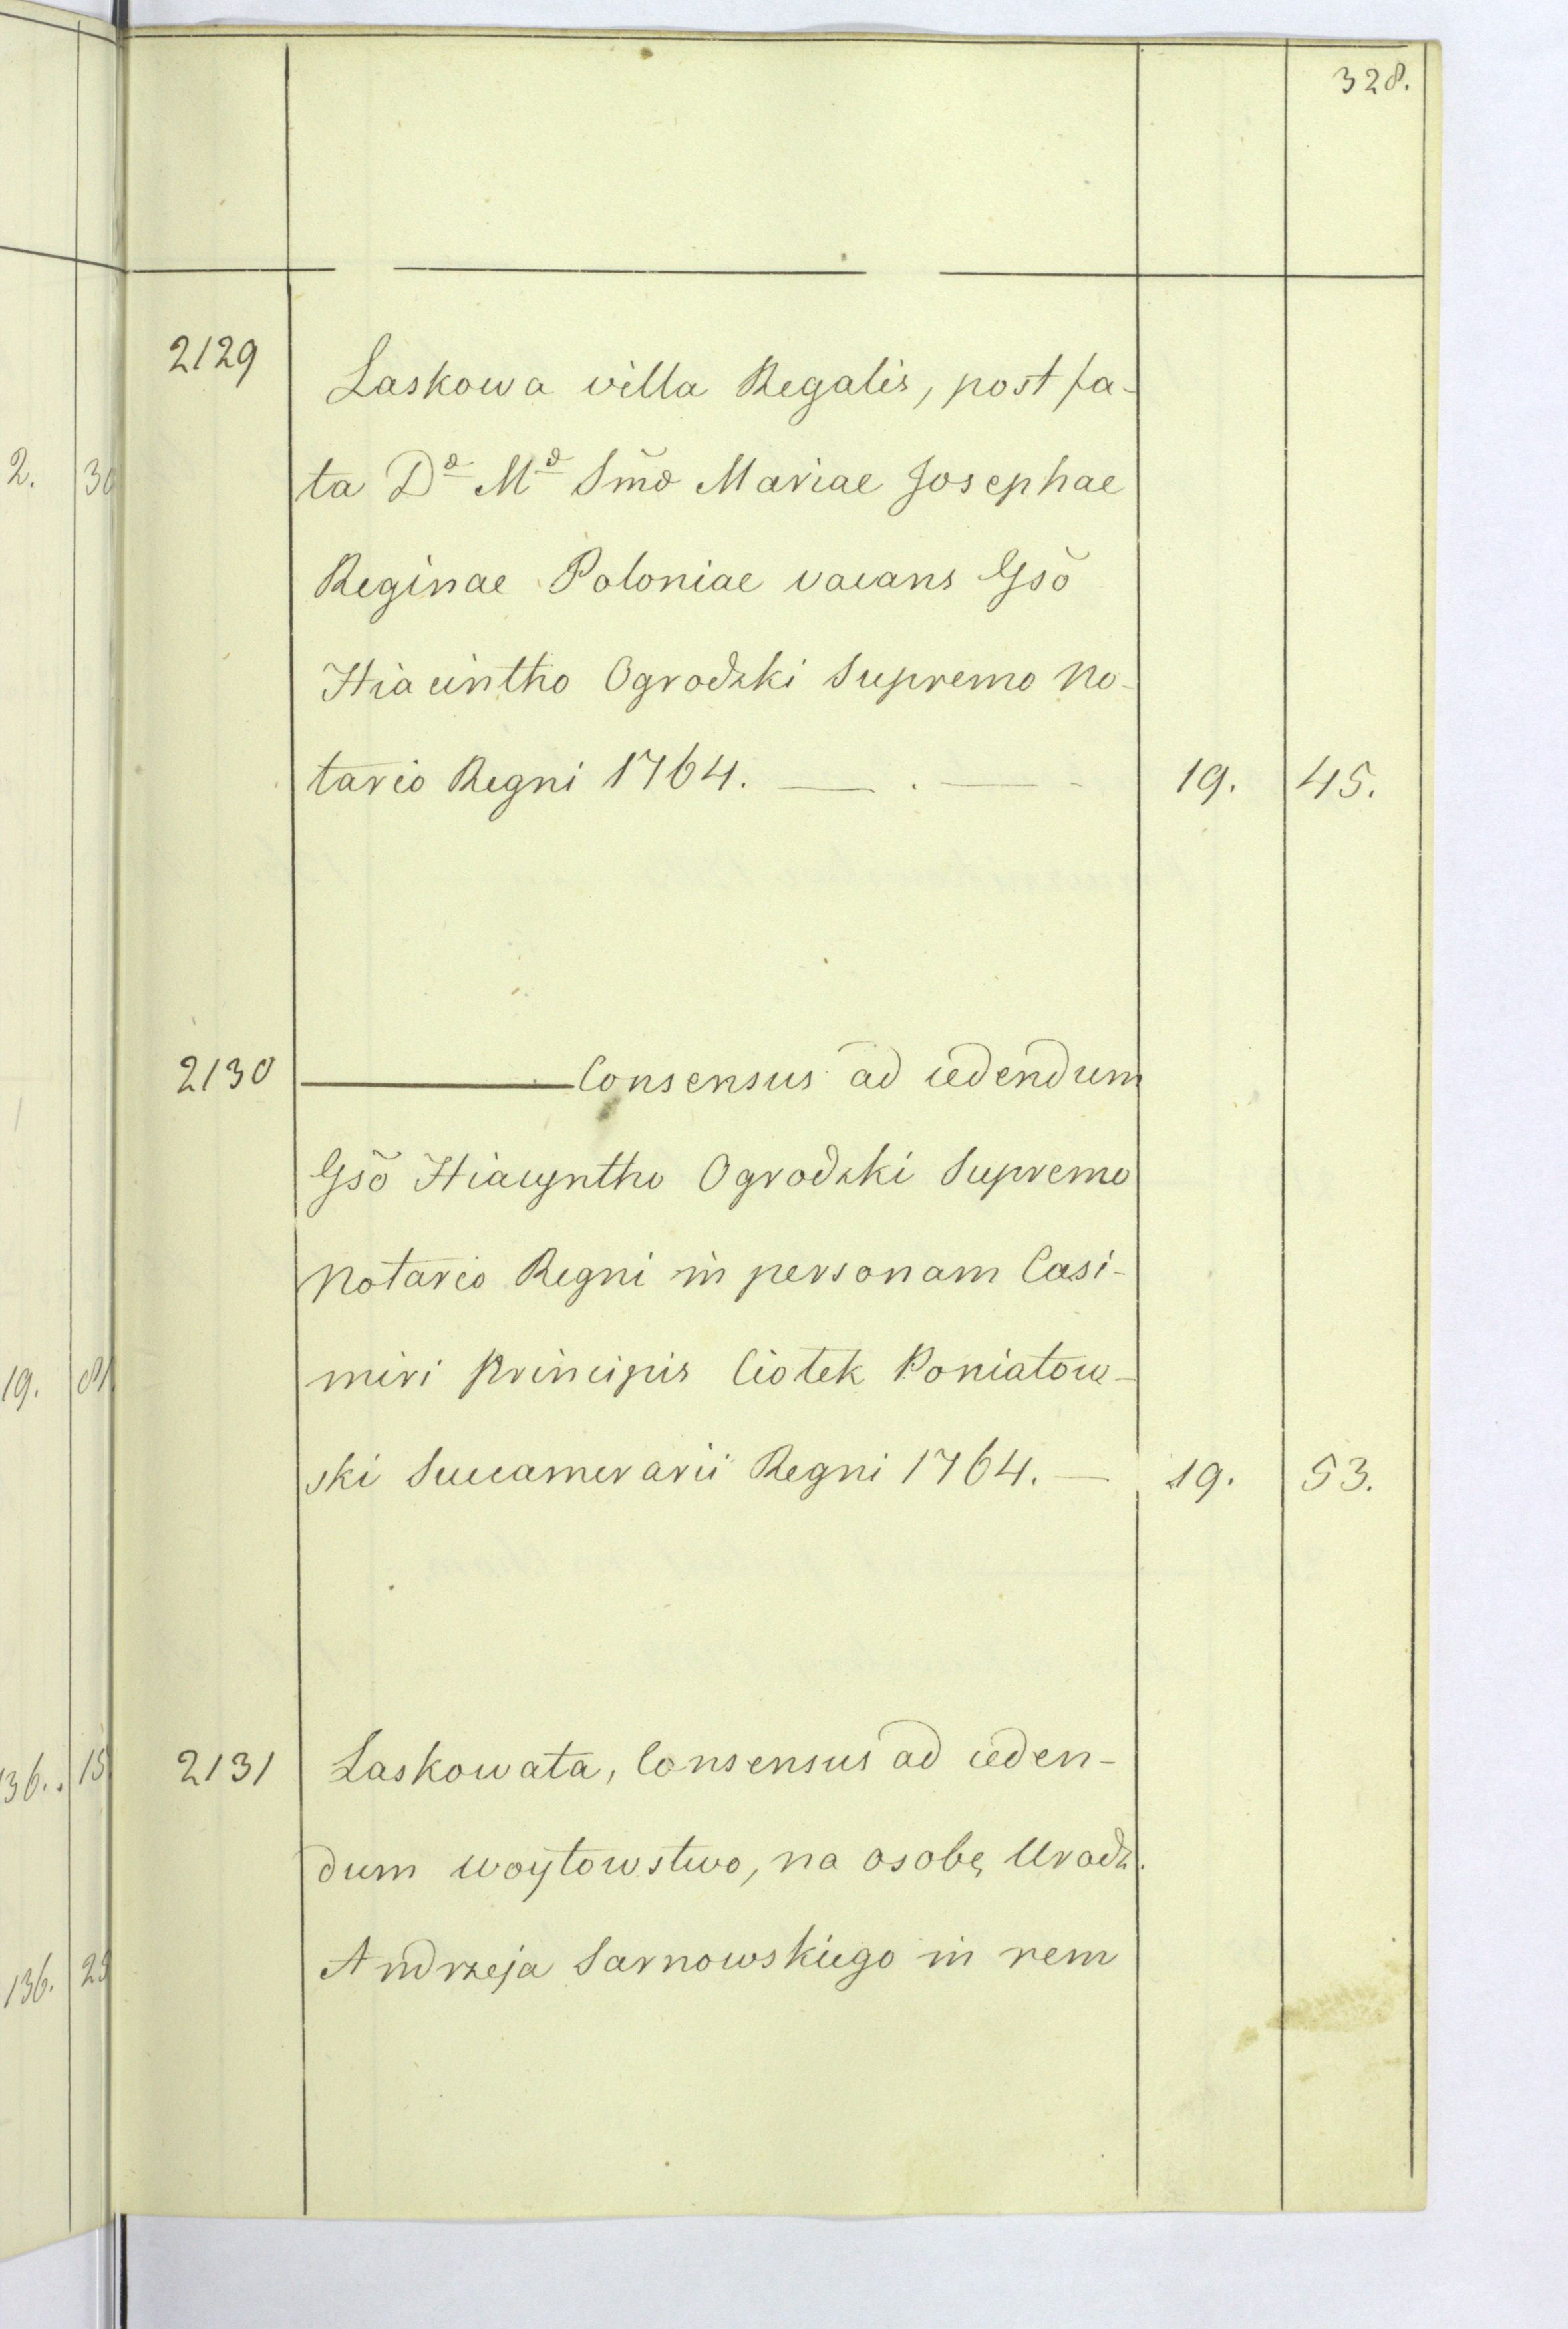 328.
2129 Laskowa villa Regalis, post fa-
ta Dᵃ Mᵃ Sm̃a Mariae Josephae
Reginae Poloniae vacans Gsõ
Hiacintho Ogrodzki Supremo No-
tario Regni 1764. — . — - 19. 45.
2130 ——— Consensus ad cedendum
Gsõ Hiacyntho Ogrodzki Supremo
Notario Regni in personam Casi-
miri Principis Ciołek Poniatow-
ski Succamerarii Regni 1764. — 19. 53.
2131 Laskowata, Consensus ad ceden-
dum woytowstwo, na osobę Urodz.
Andrzeja Sarnowskiego in rem
2. 30
19.
136. 15
136.